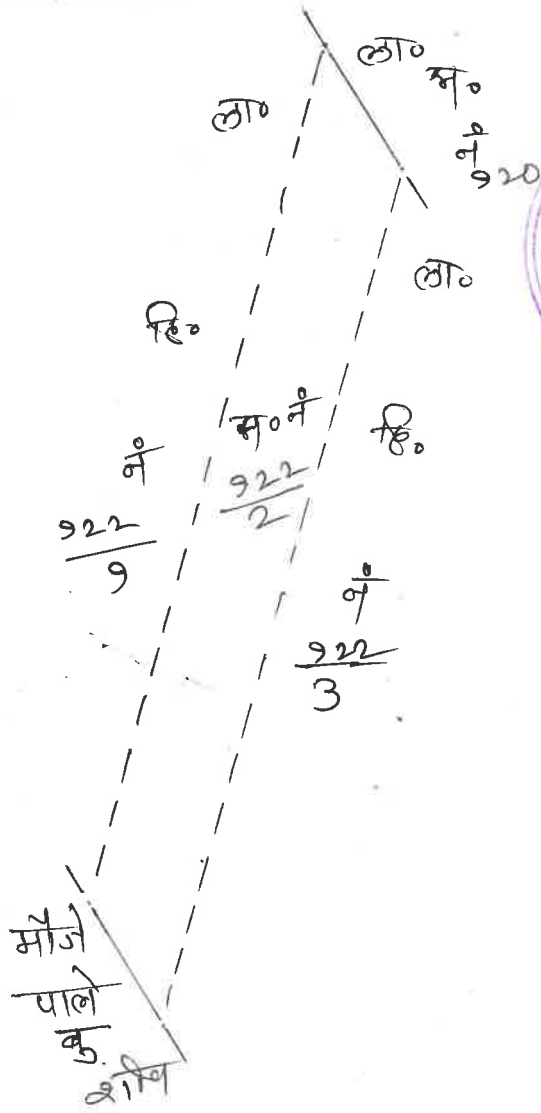 ला०
ला०
स०
नं
१२०
ला०
हि०
स० नं
१२२
२
हि०
नं
१२२
१
नं
१२२
३
मौजे
पाले
बु.
शीव